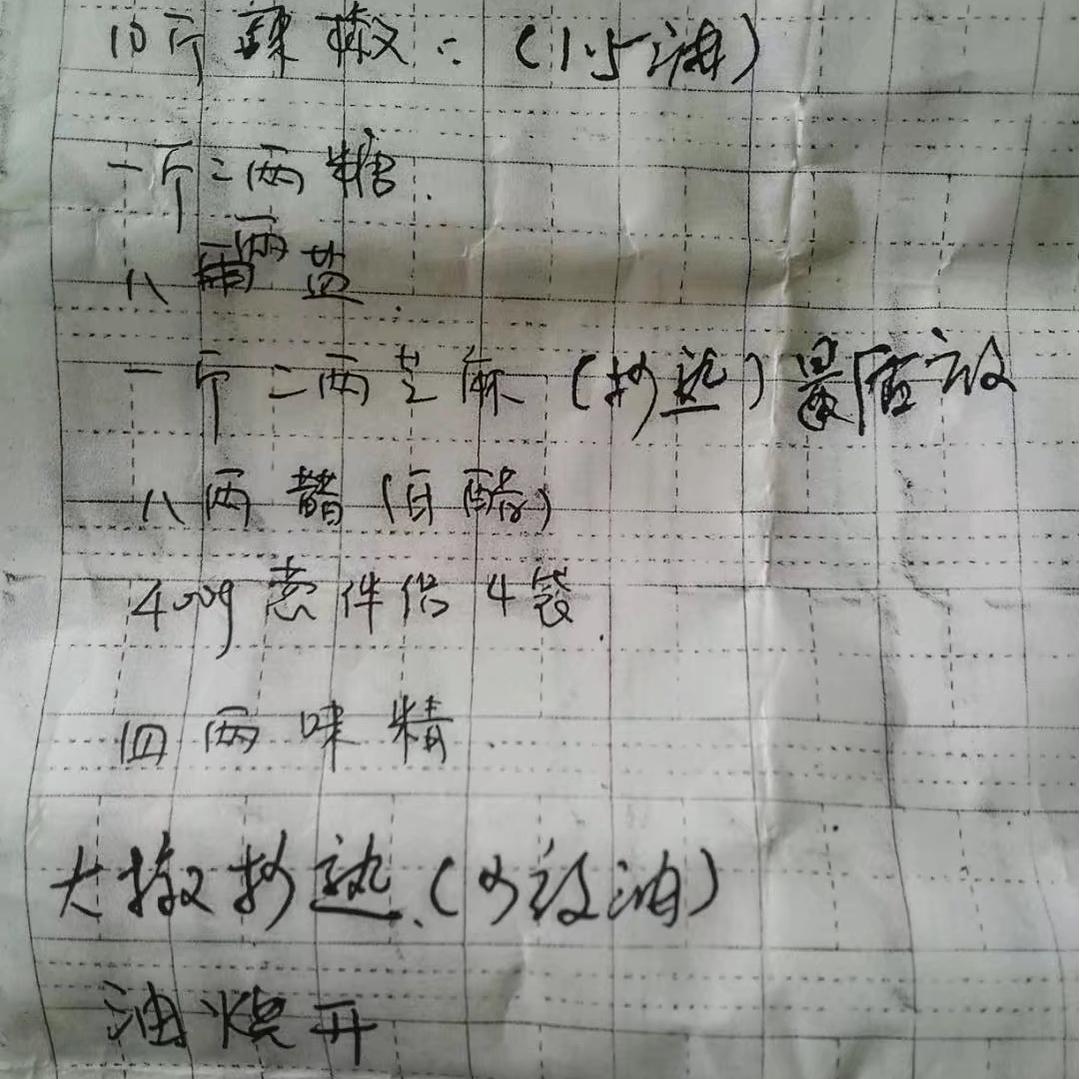 10斤辣椒：（1.5油）
一斤二两糖.
八两盐.
一斤二两芝麻（抄熟）最后放
八两醋（白醋）
400g 4袋.
四两味精
大椒抄熟.（少放油）
油烧开